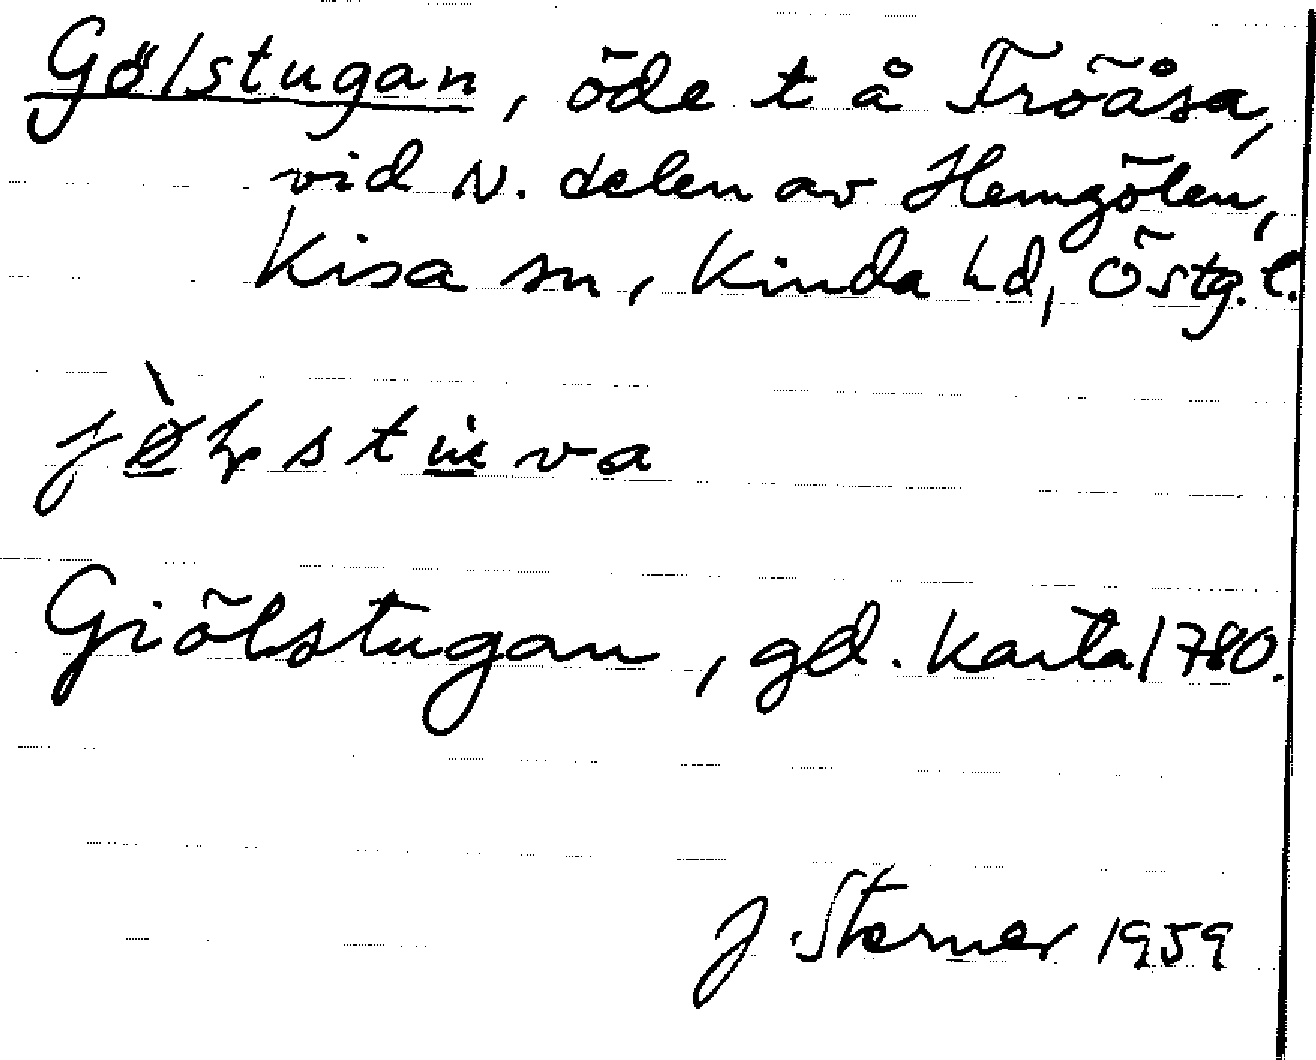 Gölstugan, öde t å Tröåsa,
vid N. delen av Hemgölen,
Kisa sn, Kinda hd, Östg. l.
Giölstugan, gd. Karta 1780.
J. Sterner 1959